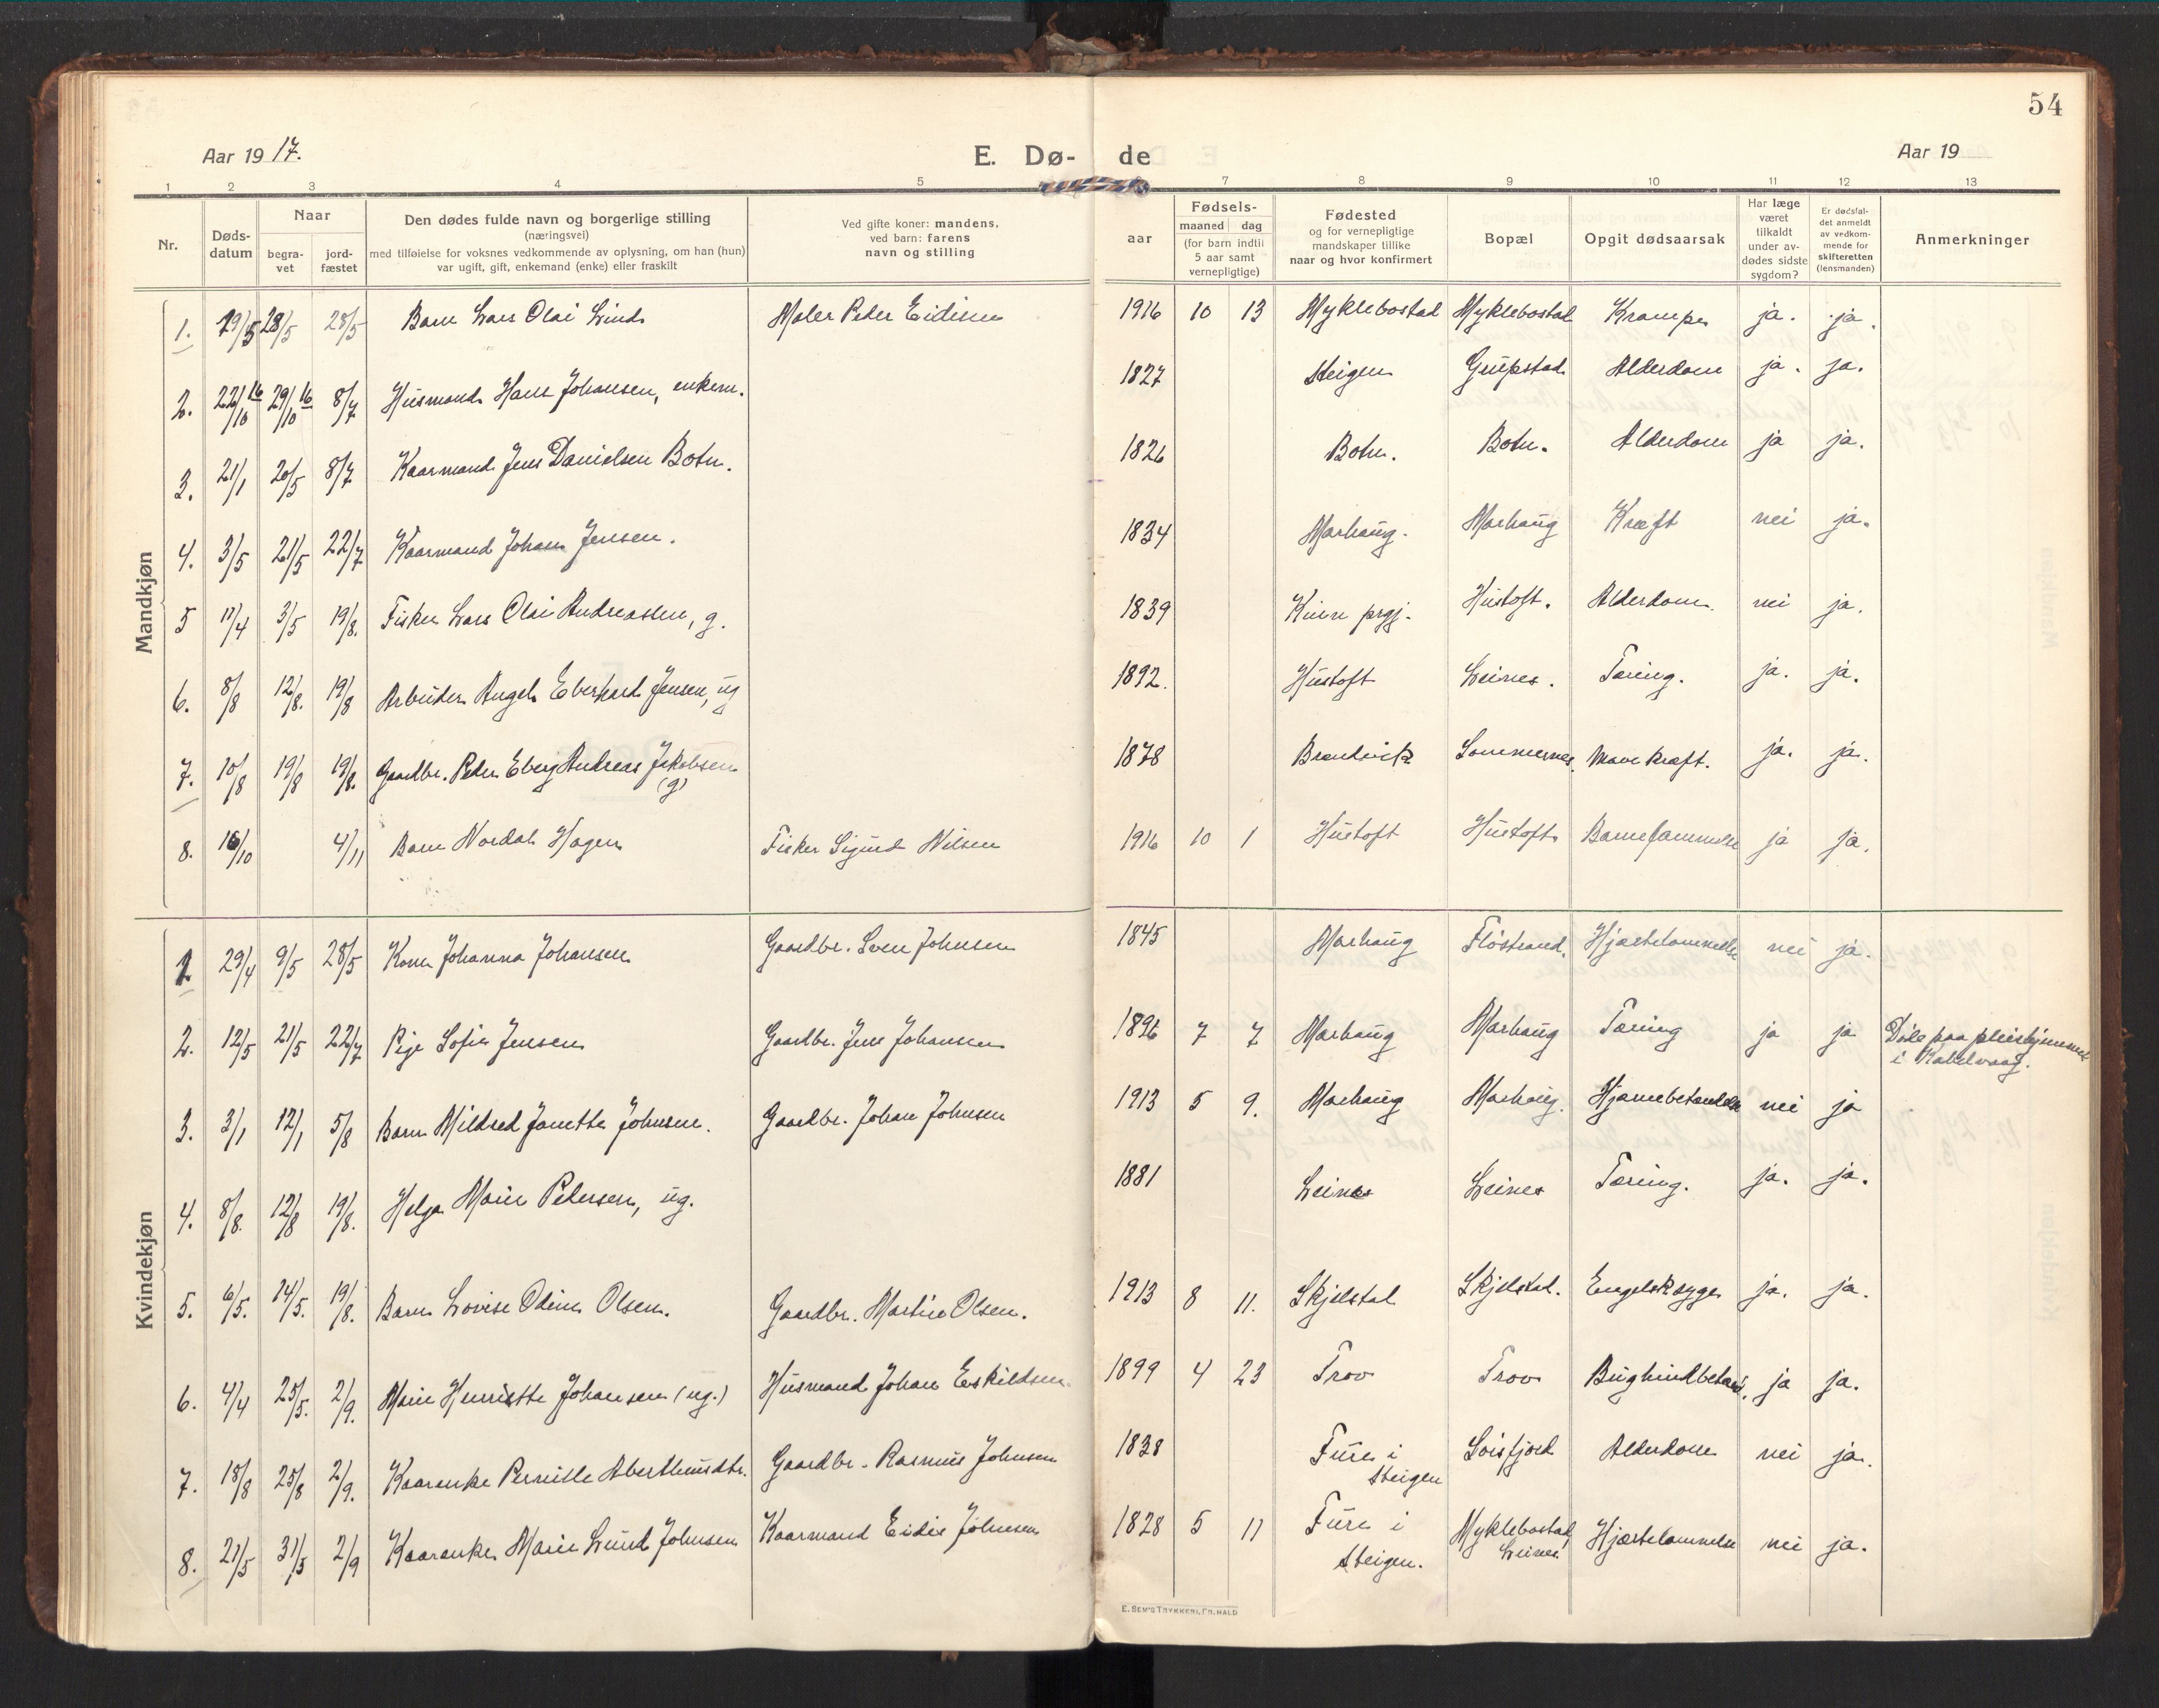 54
Aar 19 17.
E. Dø- de
Aar 19
1 2 3 4 5 7 8 9 10 11 12 13
Nr.
Døds-
datum
Naar
begra-
vet
jord-
fæstet
Den dødes fulde navn og borgerlige stilling
(næringsvei)
med tilføielse for voksnes vedkommende av oplysning, om han (hun)
var ugift, gift, enkemand (enke) eller fraskilt
Ved gifte koner: mandens,
ved barn: farens
navn og stilling
Fødsels-
aar
maaned dag
(for barn indtil
5 aar samt
vernepligtige)
Fødested
og for vernepligtige
mandskaper tillike
naar og hvor konfirmert
Bopæl
Opgit dødsaarsak
Har læge
været
tilkaldt
under av-
dødes sidste
sygdom?
Er dødsfal-
det anmeldt
av vedkom-
mende for
skifteretten
(lensmanden)
Anmerkninger
Mandkjøn
1. 19/5 28/5 28/5 Barn Lars Olai Lind Maler Peder Eidisen 1916 10 13 Myklebostad Myklebostad Krampe ja. ja.
2. 22/10 16 29/10 16 8/7 Husmand Hans Johansen, enkem. 1827 Steigen Grupstad Alderdom ja. ja.
3. 21/1 20/5 8/7 Kaarmand Jens Danielsen Botn. 1826 Botn. Botn. Alderdom ja ja.
4. 3/5 21/5 22/7 Kaarmand Johan Jensen. 1834 Marhaug. Marhaug Kræft nei ja.
5 17/4 3/5 19/8. Fisker Lars Olai Andreassen, g. 1839 Kinn prgj. Hustoft. Alderdom. nei ja.
6. 8/8 12/8. 19/8 Arbeider Angel Eberhard Jensen, ug 1892. Hustoft Leines. Tæring. ja. ja.
7. 10/8 19/8 19/8. Gaardbr. Peder Eberg Andreas Jakobsen
(g) 1878 Brandvik Sommernes. Mavekræft. ja. ja.
8. 16/10 4/11 Barn Nordal Hagen Fisker Sigurd Nilsen 1916 10 1 Hustoft Hustoft Barnelammelse ja ja.
Kvindekjøn
1 29/4 9/5 28/5 Kone Johanna Johansen Gaardbr. Sven Johnsen 1845 Marhaug Fløstrand. Hjertelammelse nei ja.
2. 12/5 21/5 22/7 Pige Sofie Jensen Gaardbr. Jens Johansen 1896 7 7 Marhaug Marhaug Tæring ja ja Døde paa pleiehjemmet
i Kabelvaag.
3. 3/1 12/1 5/8 Barn Mildred Janette Johnsen. Gaardbr. Johan Johnsen 1913 5 9. Marhaug Marhaug. Hjernebetændelse nei ja
4. 8/8. 12/8 19/8. Helga Marie Petersen, ug. 1881 Leines Leines Tæring. ja. ja.
5. 6/5. 14/5. 19/8. Barn Lovise Odine Olsen. Gaardbr. Martin Olsen. 1913 8 11. Skjelstad Skjelstad. Engelsksyge ja. ja.
6. 4/4 25/5. 2/9. Marie Henriette Johansen (ug.) Husmand Johan Eskildsen. 1899 4 23 Trov Trov Bughindbetænd. ja ja.
7. 18/8 25/8 2/9. Kaarenke Pernille Aberthusdtr. Gaardbr. Rasmus Johnsen 1838 Fure i
Steigen Leisfjord Alderdom nei ja.
8. 21/5 31/5 2/9 Kaarenke Marie Lund Johnsen Kaarmand Eidis Johnsen 1828 5 11 Fure i
Steigen. Myklebostad,
Leines Hjertelammelse nei ja.
E. SEM'S TRYKKERI, FR.HALD